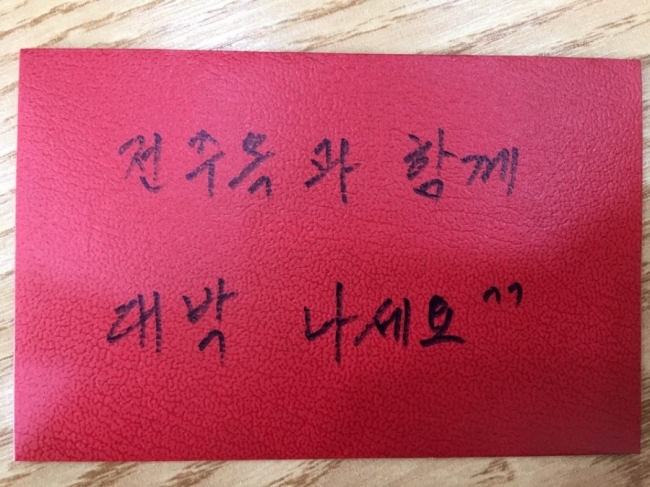 전주옥과 함께
대박 나세요^^